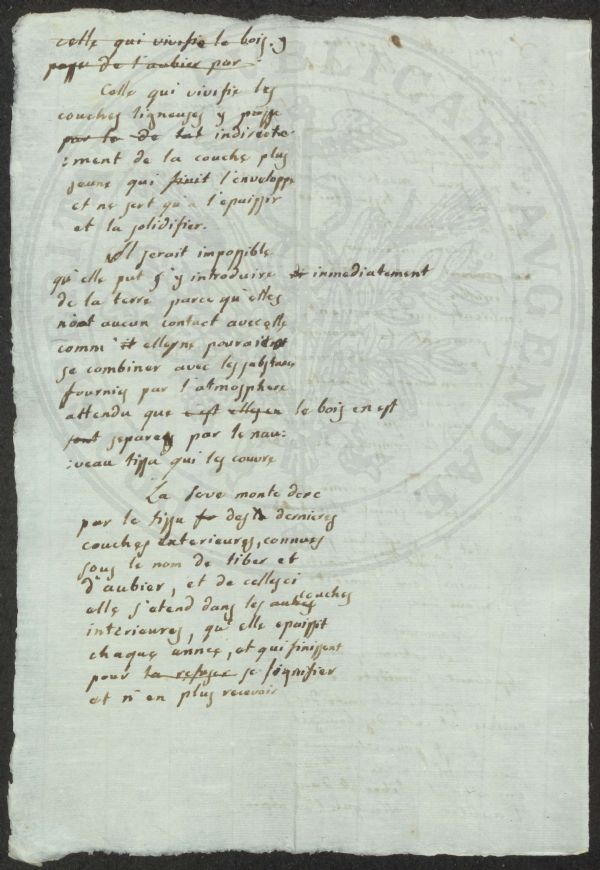 celle qui vivifie le bois y
passe de l'aubier par
Celle qui vivifie les
couches ligneuses y passe
par le de tat indirecte-
:ment de la couche plus
jeune qui finit l'enveloppe
et ne sert qu'a l'epaissir
et la solidifier.
Il serait impossible
qu'elle put s'y introduire immediatement
de la terre parce qu'elles
n'ont aucun contact avec elle
comm elles ne pouraient
se combiner avec les substances
fournies par l'atmosphere
attendu que c'est elles en le bois en est
sont separe par le nou:
:veau tissu qui les couvre
La seve monte donc
par le tissu des dernieres
couches exterieures, connues
sous le nom de liber et
d'aubier, et de celles ci
elle s'etend dans les autres couches
interieures, qu'elle epaissit
chaque année, et qui finissent
pour la refuser se lignifier
et n'en plus recevoir